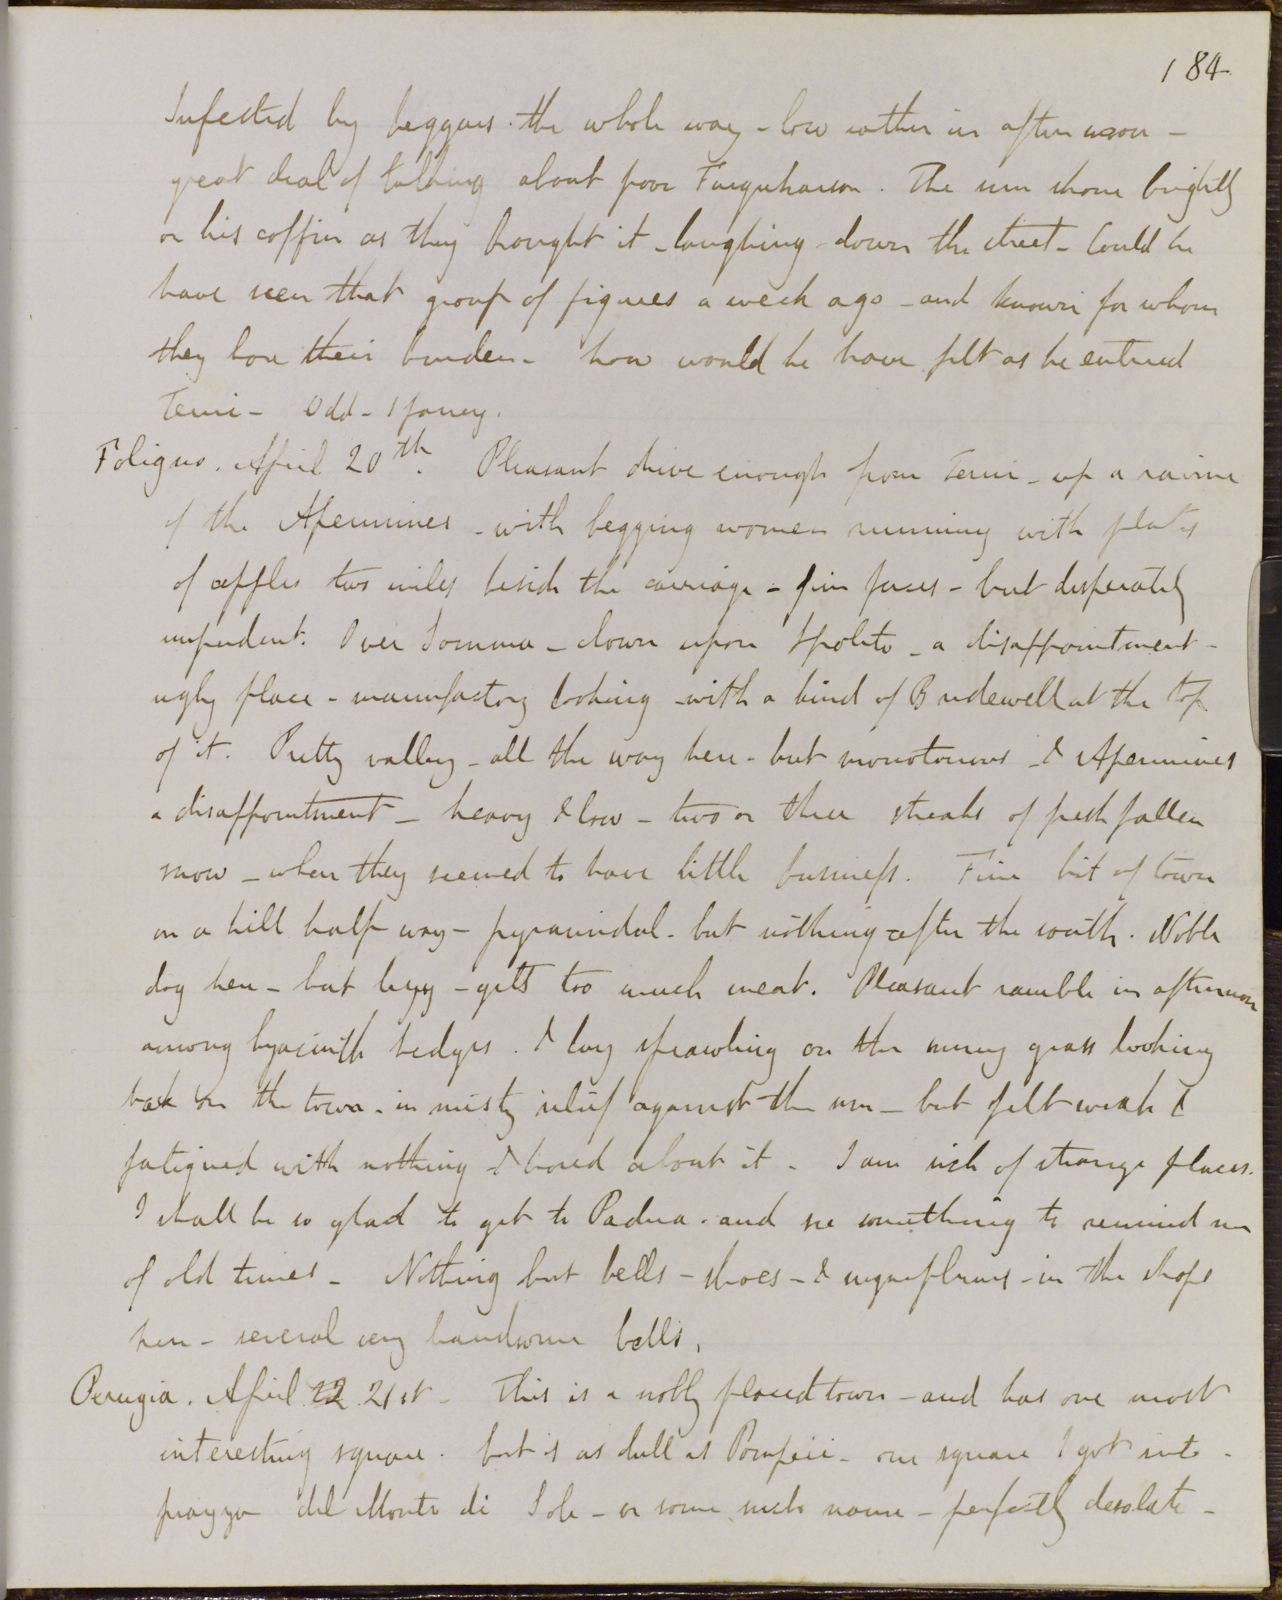 184
Infested by beggars the whole way - low rather in afternoon -
great deal of talking about poor Farquharson. The sun shone brightly
on his coffin as they brought it - laughing - down the street - Could he
have seen that group of figures a week ago - and known for whom
they bore their burden - how would he have felt as he entered
Terni - Odd - I fancy.
Foligno. April 20th. Pleasant drive enough from Terni - up a ravine
of the Apennines - with begging women running with plates
of apples two miles beside the carriage - fine faces - but desperately
impudent. Over Somma - down upon Spoleto - a disappointment -
ugly place - manufactory looking - with a kind of Bridewell at the top
of it. Pretty valley - all the way here - but monotonous - & Apennines
a disappointment - heavy & low - two or three streaks of fresh fallen
snow - when they seemed to have little business. Fine bit of town
on a hill half way - pyramidal - but nothing after the south. Noble
dog here - but lazy - gets too much meat. Pleasant ramble in afternoon
among hyacinth hedges. I lay sprawling on the sunny grass looking
back on the town - in misty relief against the sun - but felt weak &
fatigued with nothing & bored about it - I am sick of strange places.
I shall be so glad to get to Padua - and see something to remind me
of old times - Nothing but bells - shoes - & sugarplums - in the shops
here - several very handsome bells.
Perugia. April 22 21st - This is a nobly placed town - and has one most
interesting square. but is as dull as Pompeii - one square I got into -
piazza del Monte di Sole - or some such name - perfectly desolate -